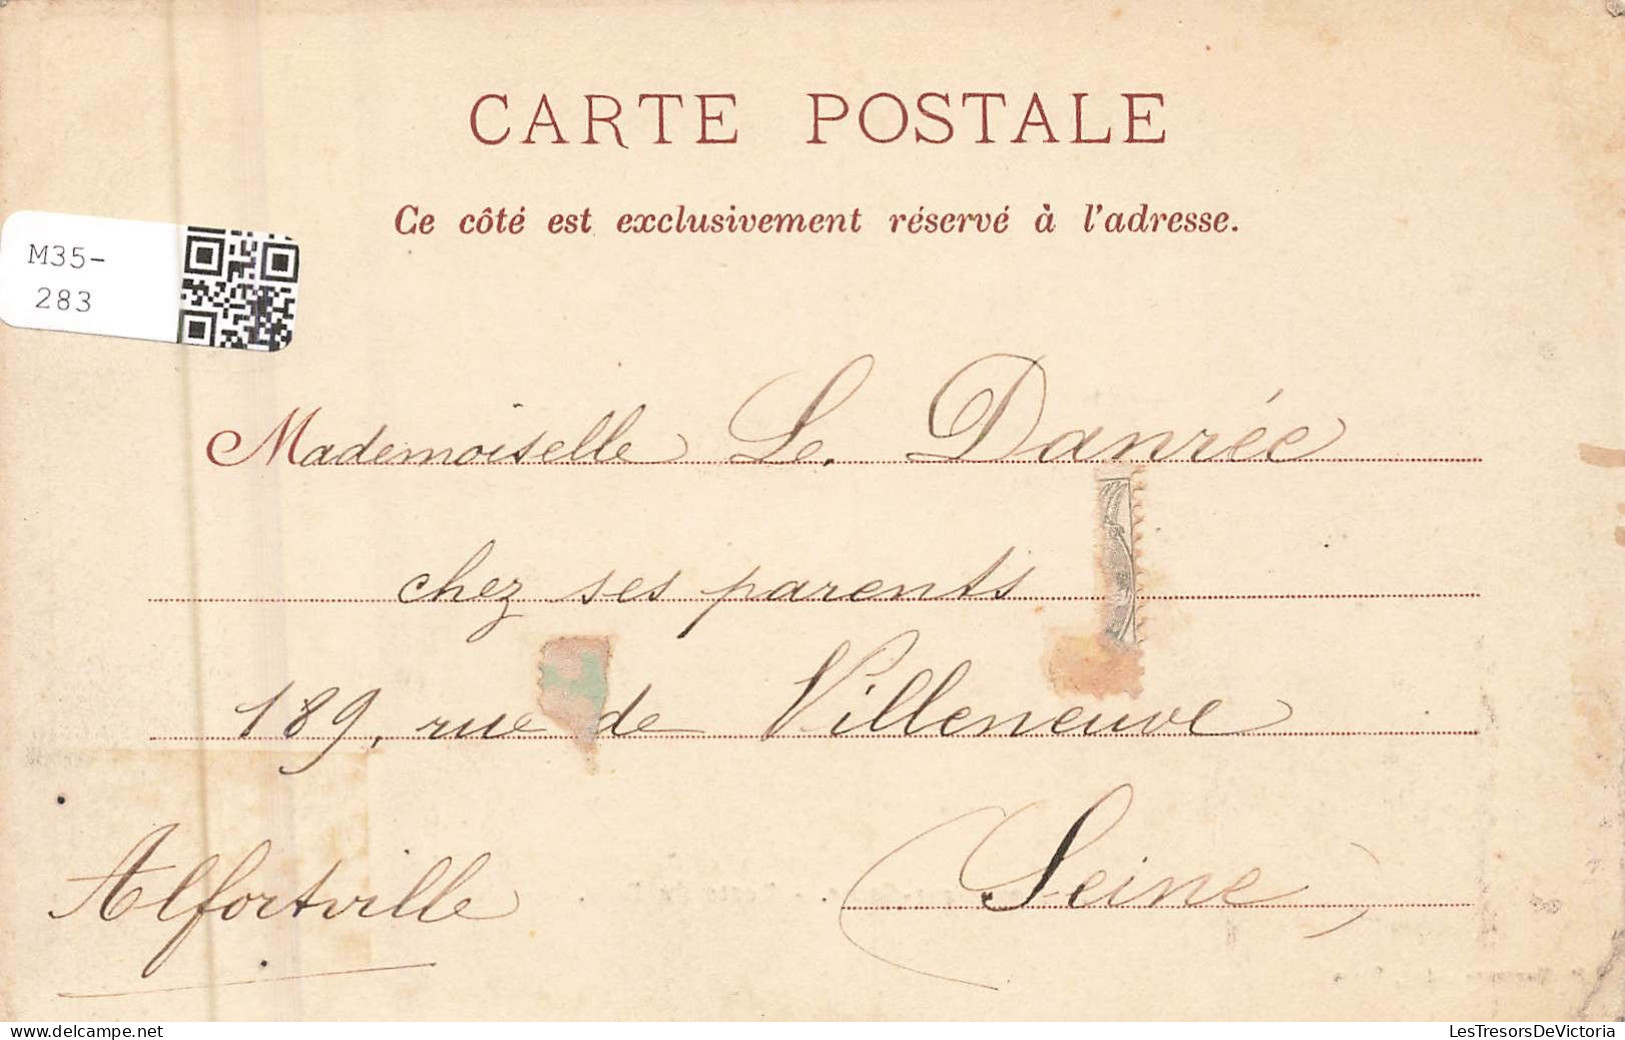 CARTE POSTALE
Ce côté est exclusivement réservé à l'adresse.
M35-
283
Mademoiselle Le Danrée
chez ses parents
189, rue de Villeneuve
Alfortville (Seine)
delcampe.net
LesTresorsDeVictoria